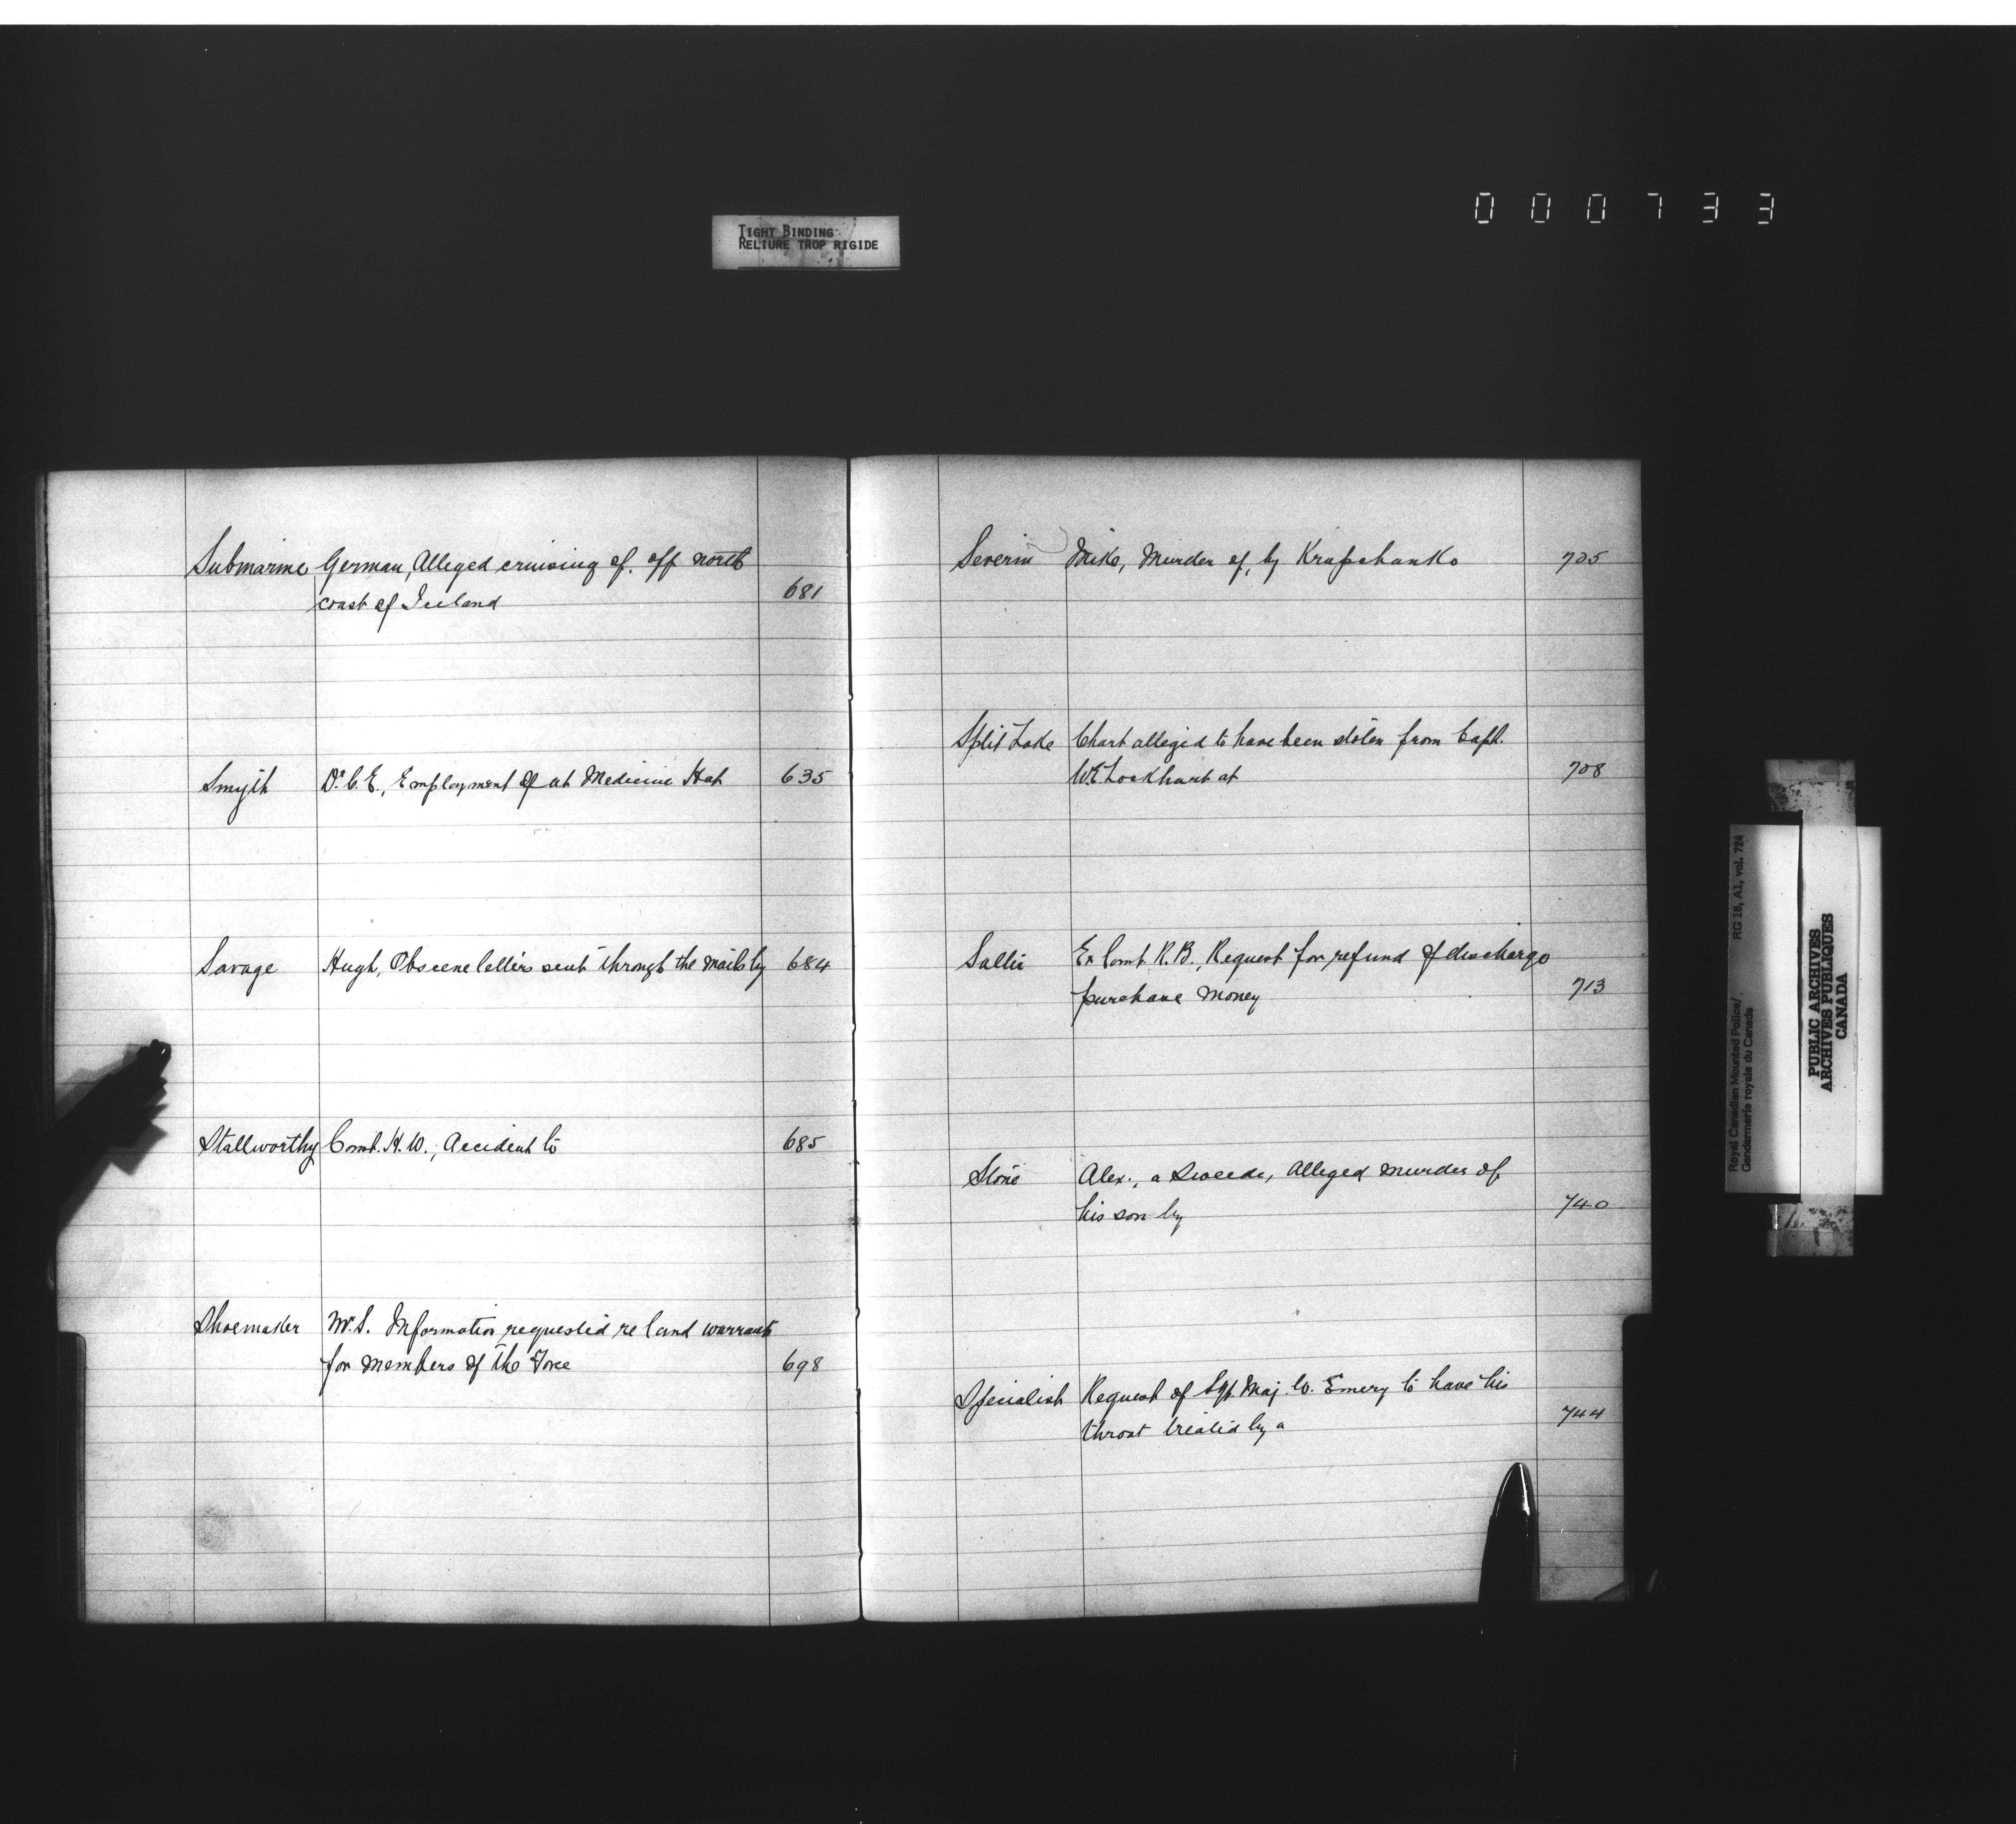 000733
TIGHT BINDING
RELIURE TROP RIGIDE
Submarine German, Alleged cruising of, off north
coast of Ireland 681
Smyth Dr. C. E., Employment of at Medicine Hat 635
Savage Hugh, Obscene letters sent through the mails by 684
Stallworthy Const. H. W., Accident to 685
Shoemaker W. S. Information requested re land warrants
for members of the Force 698
Severin Mike, Murder of, by Krapchanko 705
Split Lake Chart alleged to have been stolen from Capt.
W E Lockhart at 708
Ex Const R. B., Request for refund of discharge
purchase money 713
Stone Alex., a Sweede, Alleged murder of
his son by 740
Specialist Request of Sgt. Maj. W. Emery to have his
throat treated by a 744
Royal Canadian Mounted Police/ RG 18, A1, vol. 724
Gendarmerie royale du Canada
PUBLIC ARCHIVES
ARCHIVES PUBLIQUES
CANADA